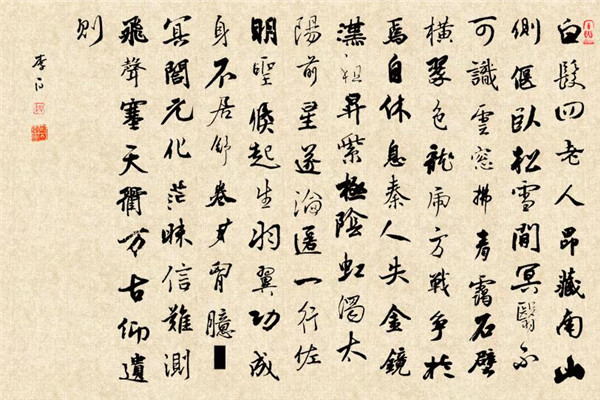 白髮四老人昂藏南山
側偃臥松雪間冥翳不
可識雲窓拂青靄石壁
橫翠色龍虎方戰爭於
焉自休息秦人失金鏡
漢祖昇紫極陰虹濁太
陽前星遂淪匿一行佐
明聖倐起生羽翼功成
身不居舒卷在胷臆
冥閤元化茫昧信難測
飛聲塞天衢万古仰遺
則
李白